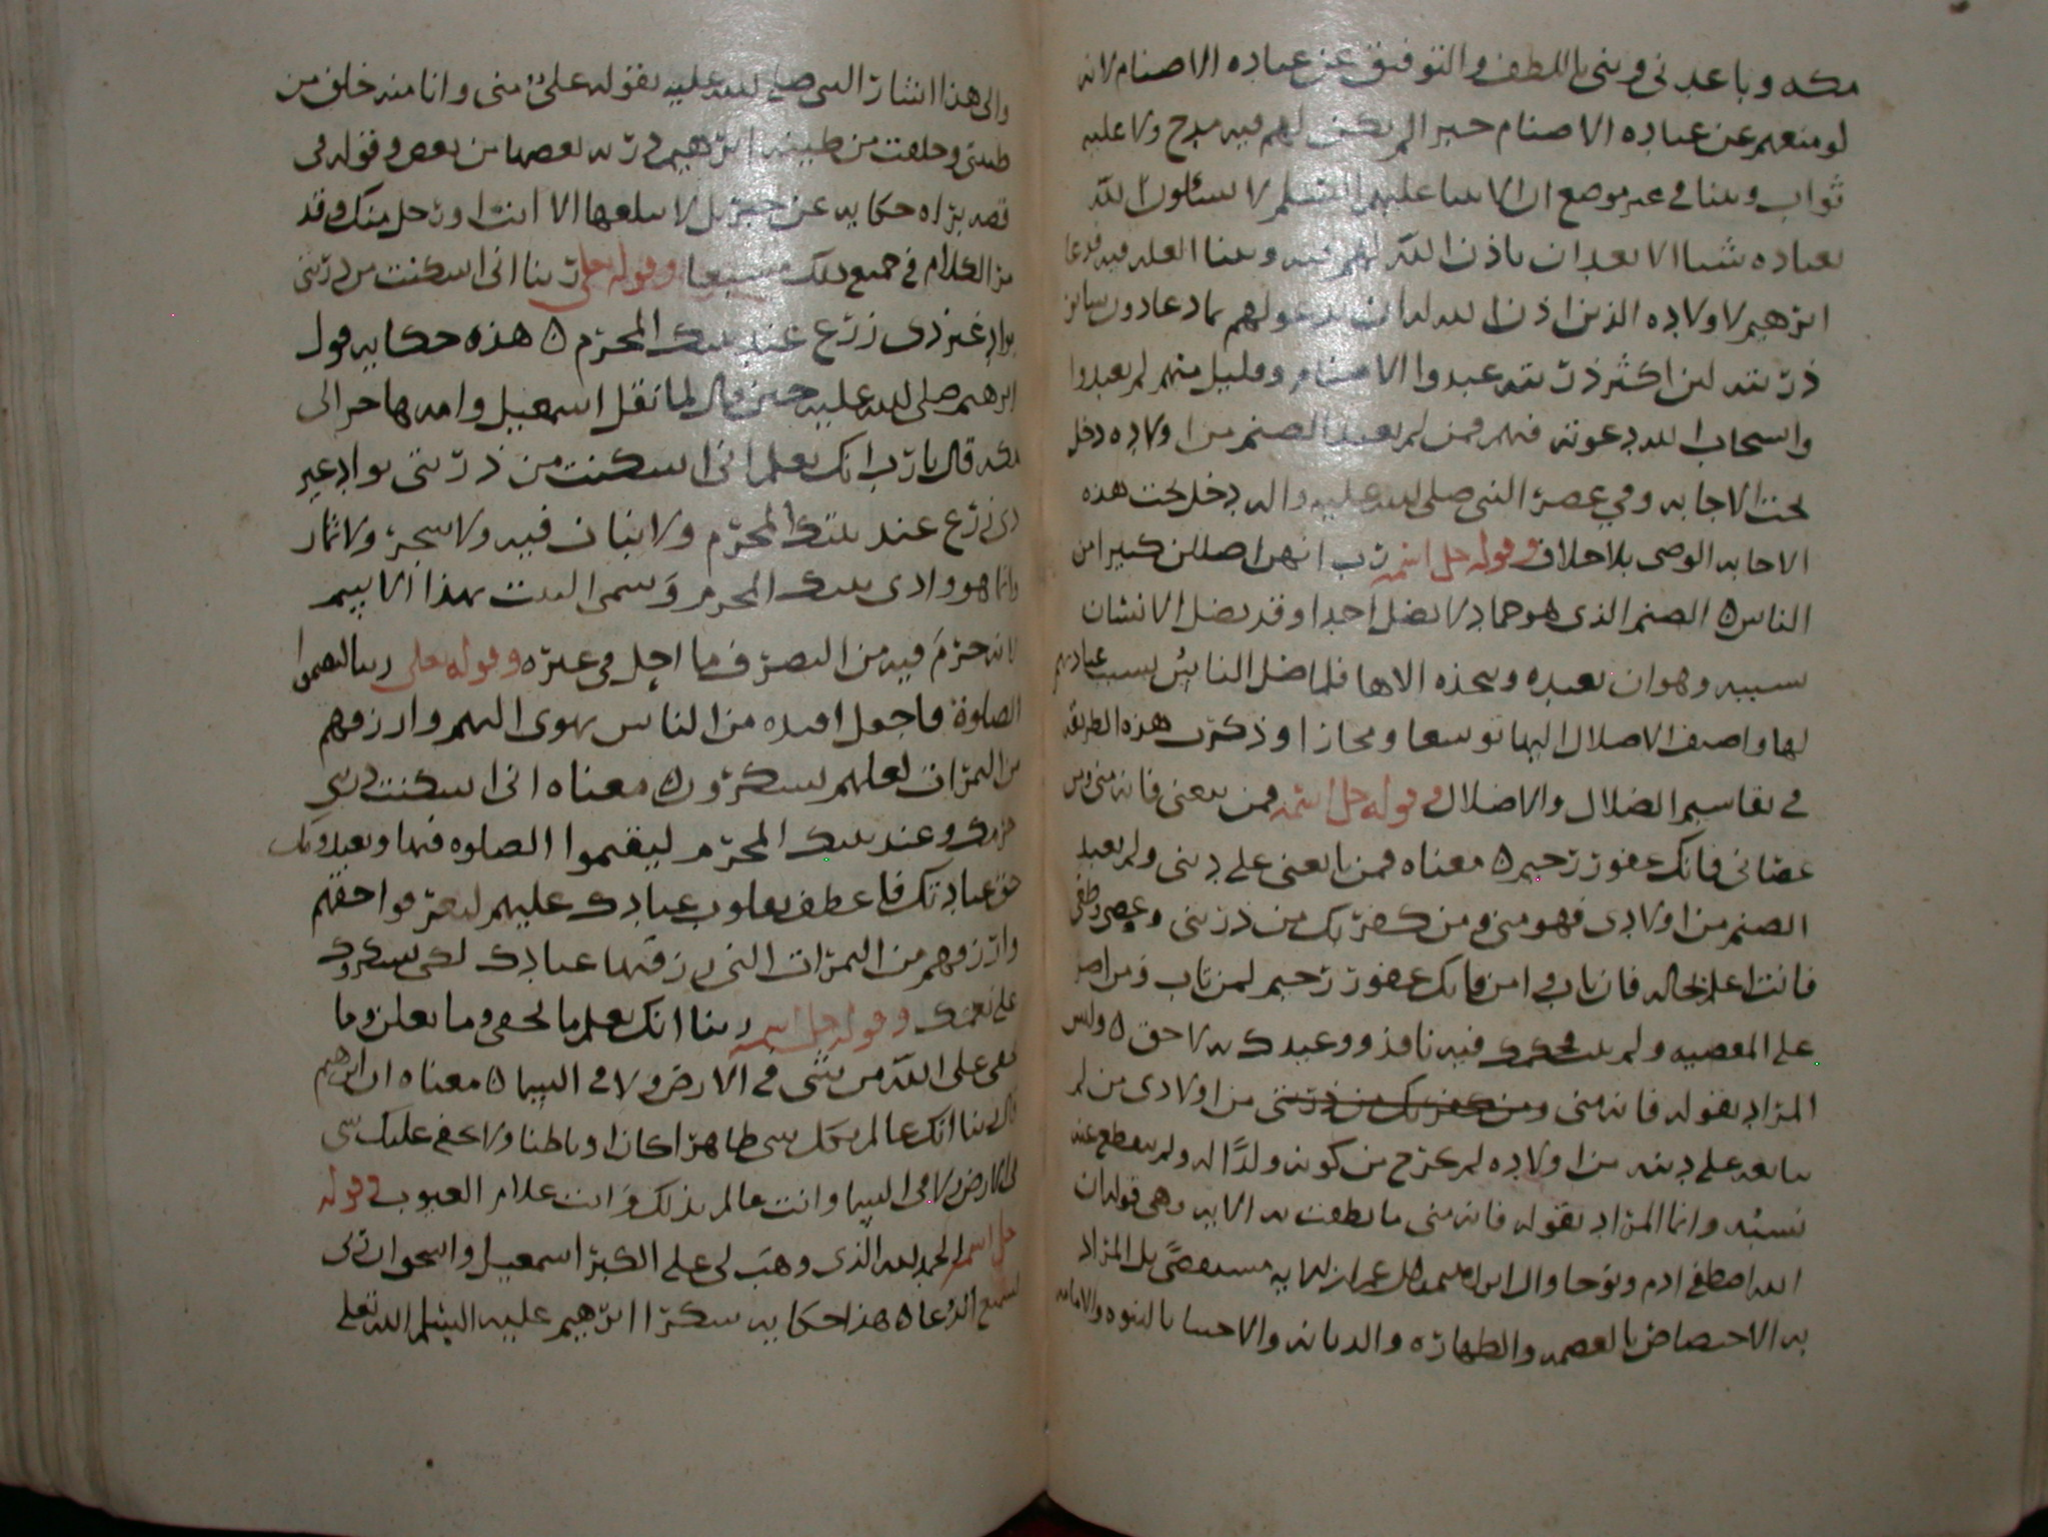 مكه وباعدنى وبنى باللطف والتوفيق عن عباده الاصنام لانه
لو منعهم عن عباده الاصنام جبرا لم يكن لهم فيه مدح ولا عليه
ثواب وبينا في غير موضع ان الانبيا عليهم السلم لا يسئلون الله
لعباده شيا الا بعد ان ياذن الله لهم فيه وبينا العله فيه فدعا
ابرهيم لاولاده الذين اذن الله له ان يدعو لهم بما دعا دون سائر
ذريته لان اكثر ذريته عبدوا الاصنام وقليل منهم لم يعبدوا
واستجاب الله دعوته فيهم فمن لم يعبد الصنم من اولاده دخل
تحت الاجابه وفي عصر النبى صلى الله عليه واله دخل تحت هذه
الاجابه الوصى بلا خلاف وقوله جل اسمه رب انهن اضللن كثيرا من
الناس ه الصنم الذى هو جماد لا يضل احدا وقد يضل الانسان
بسببه وهو ان يعبده ويتخذه الاها فلما ضل الناس بسبب عبادتهم
لها واضيف الاضلال اليها توسعا ومجازا وذكرت هذه الطريقه
في تقاسيم الضلال والاضلال وقوله جل اسمه فمن تبعنى فانه منى ومن
عصانى فانك غفور رحيم ه معناه فمن تابعنى على دينى ولم يعبد
الصنم من اولادى فهو منى ومن كفر بك من ذريتى وعصى
فانت اعلم بحاله فان تاب وامن فانك غفور رحيم لمن تاب ومن اصر
على المعصيه ولم يتب فحكمك فيه نافذ ووعيدك به لاحق ه وليس
المراد بقوله فانه منى ومن كفر بك من ذريتى من اولادى من لم
يتابعه على دينه من اولاده لم يخرج من كونه ولدا له ولم ينقطع عنه
نسبه وانما المراد بقوله فانه منى ما نطقت به الايه وهى قوله ان
الله اصطفى ادم ونوحا وال ابراهيم وال عمران بل المراد
به الاختصاص بالعصمه والطهاره والديانه والاجتبا بالنبوه والامامه
والى هذا اشار النبى صلى الله عليه بقوله على منى وانا منه خلق من
طينتى وخلقت من طينه ابرهيم ذريه بعضها من بعض وقوله في
قصه براه حكايه عن جبريل لا يبلغها الا انت او رجل منك وقد
مر الكلام في جميع ذلك مشبعا وقوله تعلى ربنا انى اسكنت من ذريتى
بواد غير ذى زرع عند بيتك المحرم ه هذه حكايه قول
ابرهيم صلى الله عليه حين قال لما نقل اسمعيل وامه هاجر الى
مكه قال يا رب انك تعلم انى اسكنت من ذريتى بواد غير
ذى زرع عند بيتك المحرم ولا نبات فيه ولا شجر ولا ثمار
وانما هو وادى بيتك المحرم وسمى البيت بهذا الاسم
لانه حرم فيه من التصرف ما احل في غيره وقوله تعلى ربنا ليقيموا
الصلوة فاجعل افيده من الناس تهوى اليهم وارزقهم
من الثمرات لعلهم يشكرون ه معناه انى اسكنت ذريتى
حرمك وعند بيتك المحرم ليقيموا الصلوه فيها ويعبدونك
حق عبادتك فاعطف بقلوب عبادك عليهم ليعرفوا حقهم
وارزقهم من الثمرات التى رزقتها عبادك لكى يشكروك
على نعمتك وقوله جل اسمه ربنا انك تعلم ما نخفى وما نعلن وما
يخفى على الله من شى في الارض ولا في السما ه معناه ان ابرهيم
قال ربنا انك عالم بكل شى ظاهرا كان او باطنا ولا يخفى عليك شى
في الارض ولا في السما وانت عالم بذلك وانت علام الغيوب وقوله
جل اسمه الحمد لله الذى وهب لى على الكبر اسمعيل واسحق ان ربى
لسميع الدعا ه هذا حكايه شكر ابرهيم عليه السلم الله تعلى